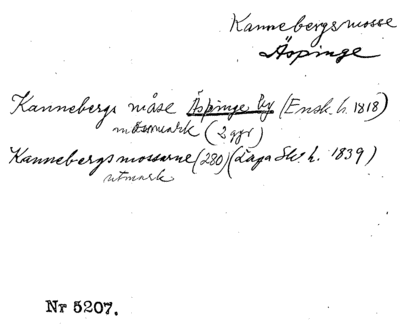 Kannebergsmosse
Äspinge
Kannebergs måse Äspinge by (Ensk. h. 1818)
mossmark (2 ggr)
Kannebergsmossarne (280) (Laga Sk. h. 1839)
utmark
Nr 5207.